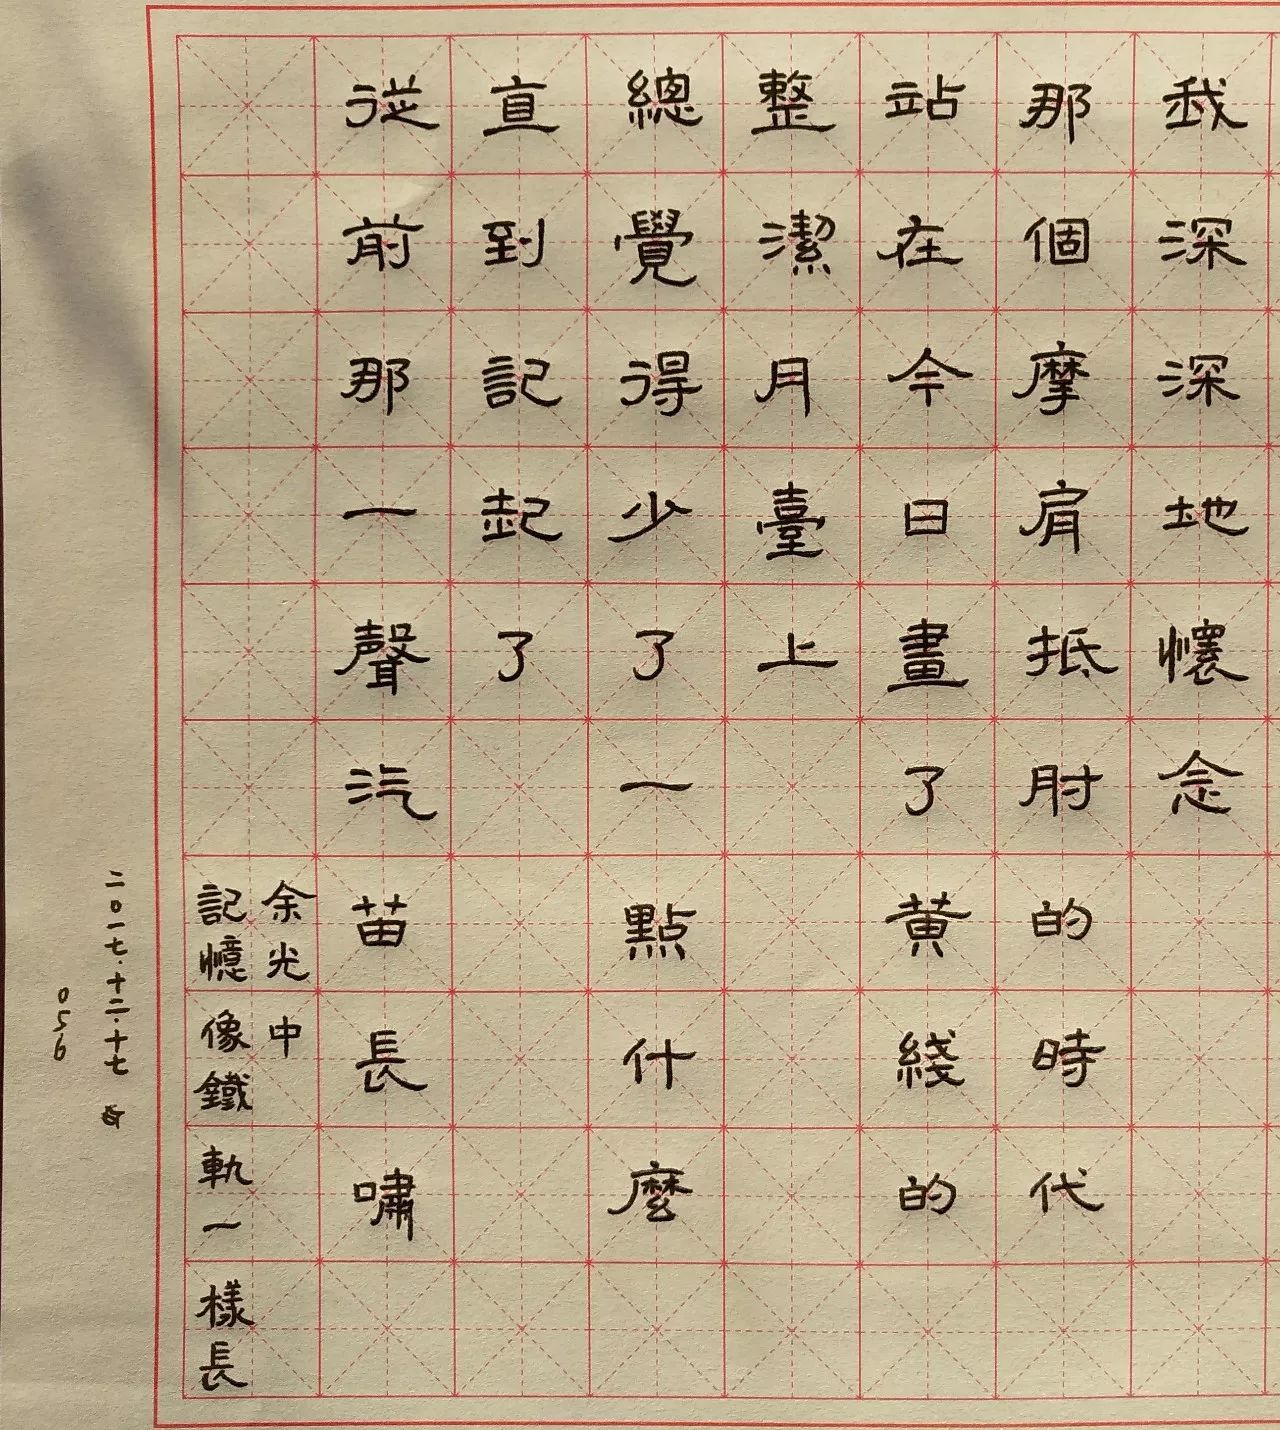 我深深地懷念
那個摩肩抵肘的時代
站在今日畫了黄綫的
整潔月臺上
總覺得少了一點什麼
直到記起了
從前那一聲汽苗長嘯
余光中
記憶像鐵軌一樣長
二〇一七.十二.十七
056